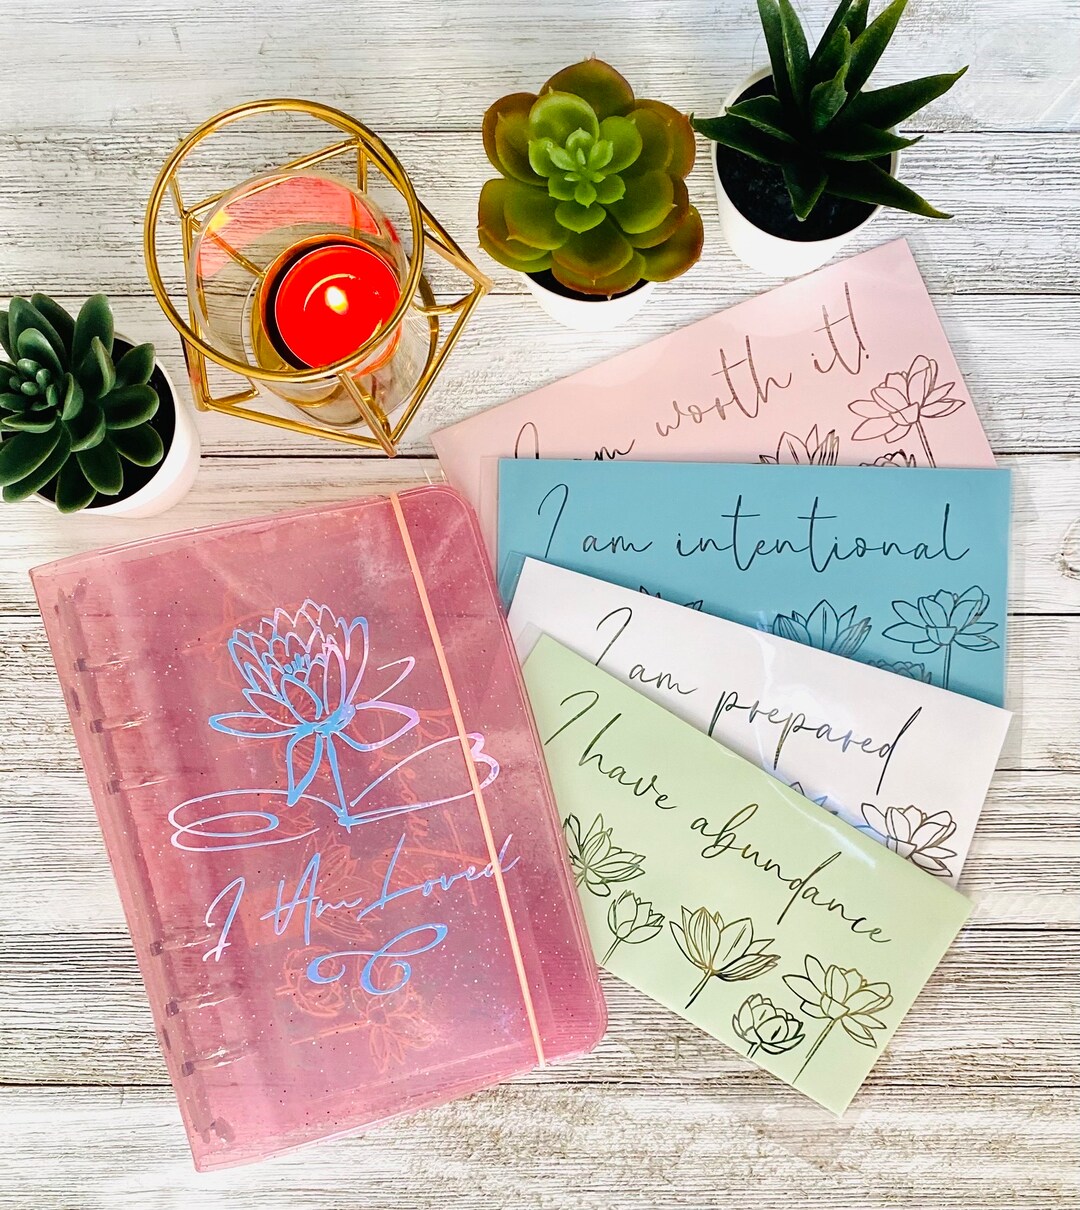 I am worth it!
I am intentional
I am prepared
I have abundance
I Am Loved